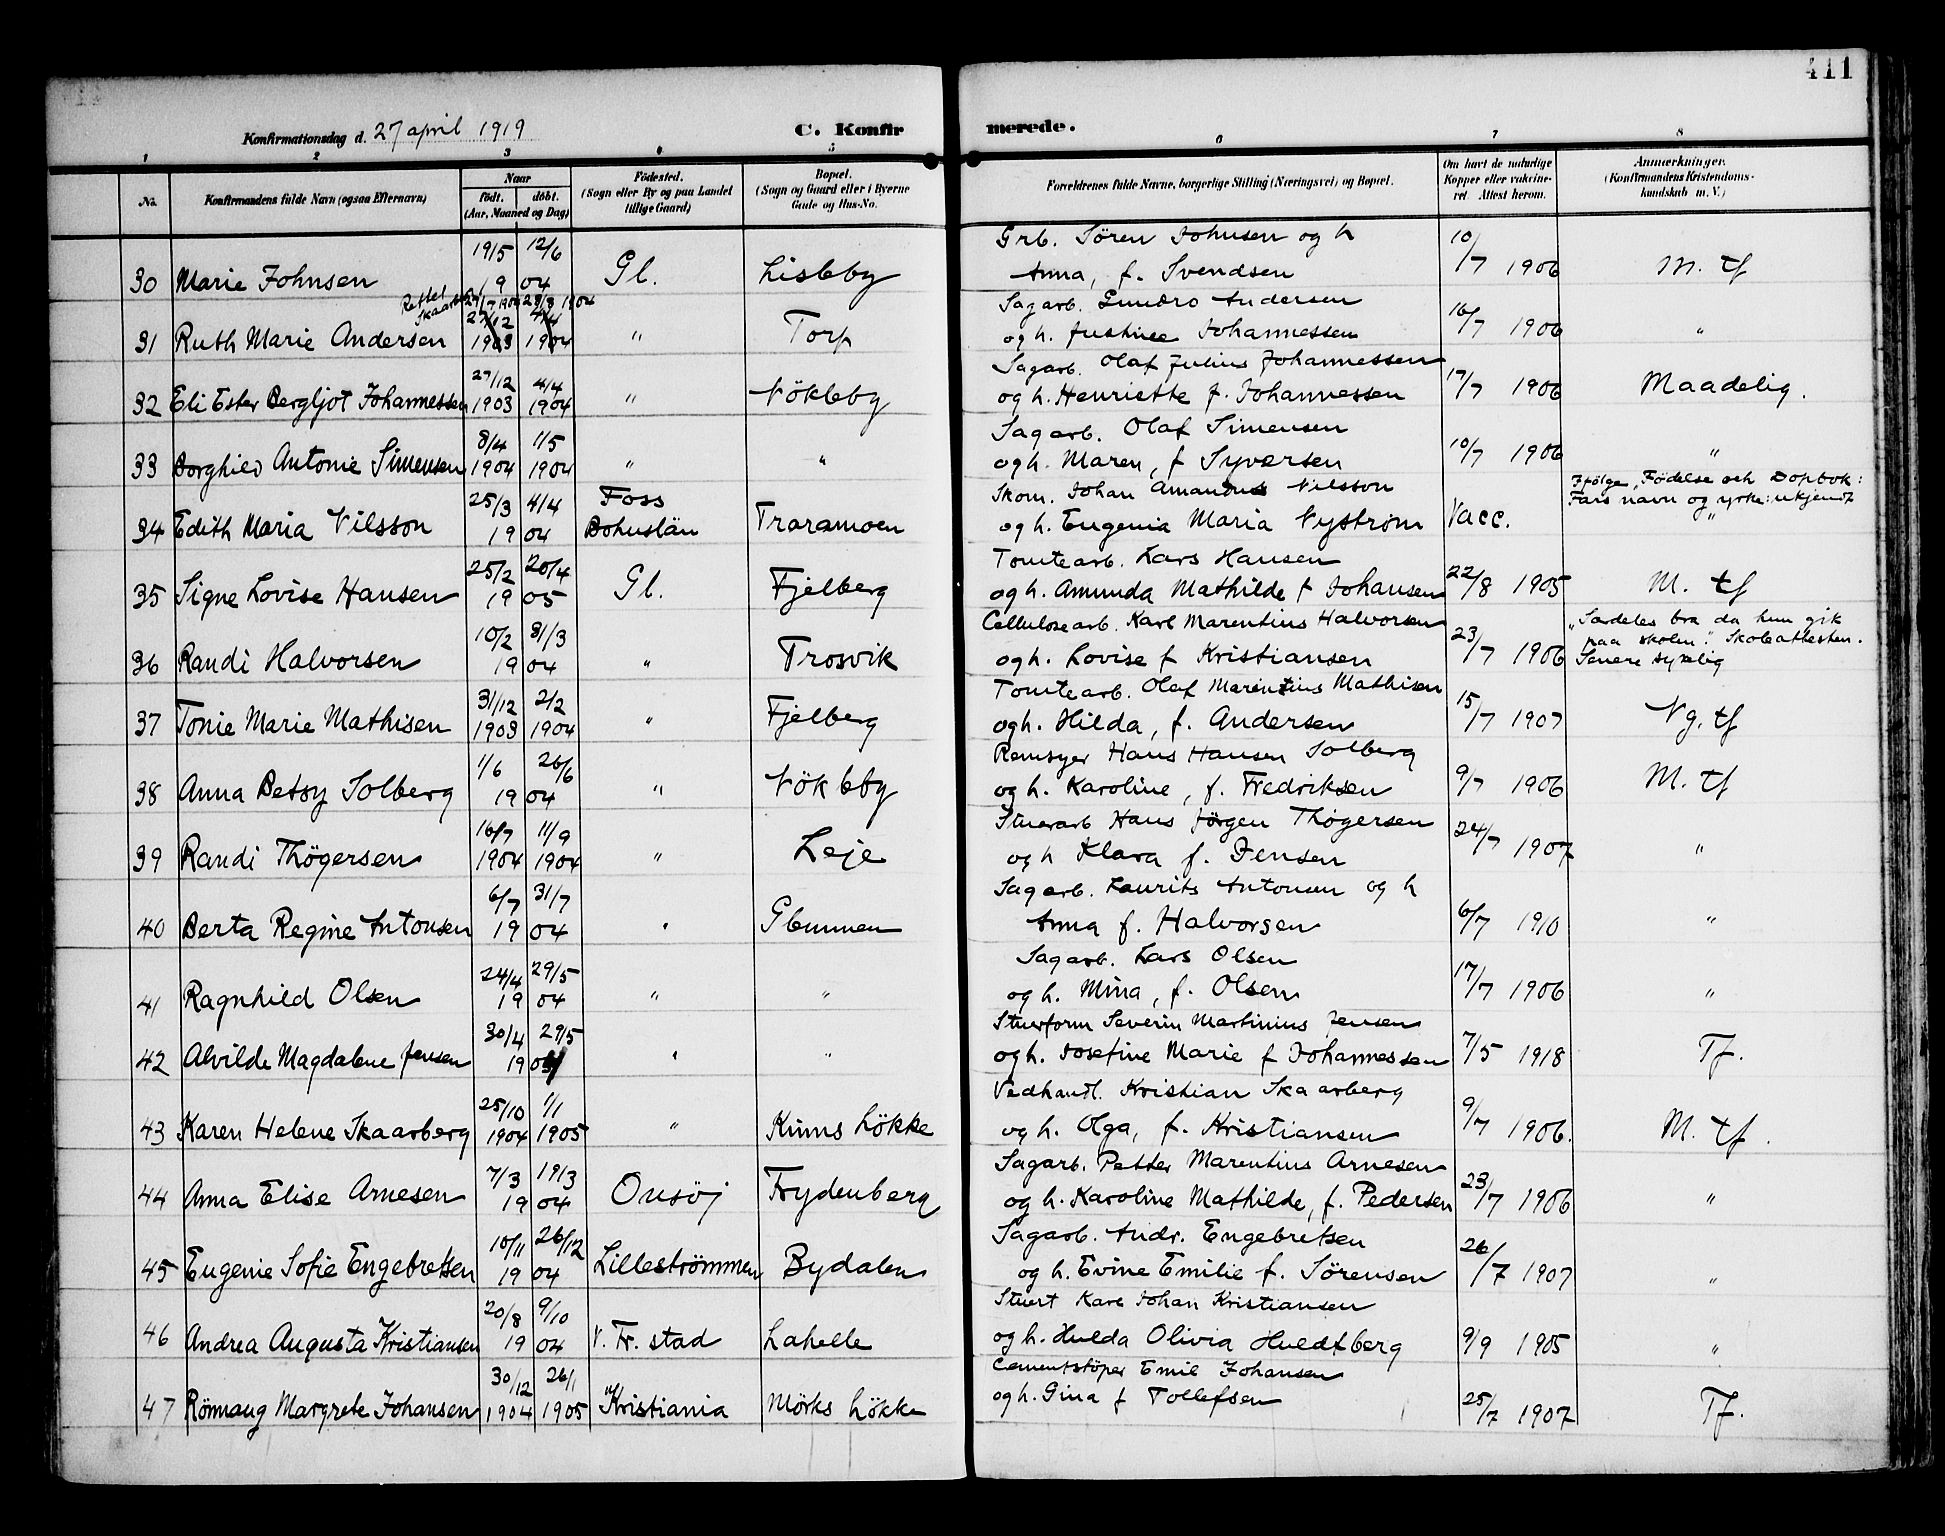 411
Konfirmationsdag d. 27 april 1919 C. Konfir merede.
1 2 3 4 5 6 7 8
No. Konfirmandens fulde Navn (ogsaa Efternavn) Naar født. døbt. (Aar, Maaned og Dag) Fødested. (Sogn eller By og paa Landet tillige Gaard) Bopæl. (Sogn og Gaard eller i Byerne Gade og Hus-No. Forældrenes fulde Navne, borgerlige Stilling (Næringsvei) og Bopæl. Om havt de naturlige Kopper eller vakcineret Attest herom. Anmærkninger. (Konfirmandens Kristendomskundskab m. V.)
19/5 12/6 Grb. Sören Johnsen og h
30 Marie Johnsen 19 04 Gl. Lisleby Anna, f. Svendsen 10/7 1906 M. tf
Rettet Skaarberg 27/7 1904 28/8 1904
27/12 4/4 Sagarb. Gundro Andersen
31 Ruth Marie Andersen 1903 1904 " Torp og h. Justine Johannessen 16/7 1906 "
27/12 4/4 Sagarb. Olaf Julius Johannessen
32 Eli Ester Bergljot Johannessen 1903 1904 " Nökleby og h. Henriette f. Johannessen 17/7 1906 Maadelig.
8/4 1/5 Sagarb. Olaf Simensen
33 Borghild Antonie Simensen 1904 1904 " " og h. Maren, f Syversen 10/7 1906 "
25/3 4/4 Foss Skom. Johan Amandus Nilsson Ifølge, Födelse och Dopbok: Fars navn og yrke: ukjendt
34 Edith Maria Nilsson 19 04 Bohuslän Traramoen og h. Eugenia Maria Nyström Vacc. "
25/2 20/4 Tomtearb. Lars Hansen
35 Signe Lovise Hansen 19 05 Gl. Fjelberg og h. Amunda Mathilde f Johansen 22/8 1905 M. tf
10/2 31/3 Cellulosearb. Karl Marentius Halvorsen "Særdeles bra da hun gik paa skolen". Skoleattesten.
36 Randi Halvorsen 19 04 " Trosvik og h. Lovise f Kristiansen 23/7 1906 Senere sykelig
31/12 2/2 Tomtearb. Olaf Marentius Mathisen
37 Tonie Marie Mathisen 1903 1904 " Fjelberg og h. Hilda, f. Andersen 15/7 1907 Ng. tf
1/6 26/6 Remsyer Hans Hansen Solberg
38 Anna Betsy Solberg 19 04 " Nökleby og h. Karoline, f. Fredriksen 9/7 1906 M. tf
16/7 11/9 Stuerarb Hans Jörgen Thögersen
39 Randi Thögersen 1904 1904 " Leje og h Klara f. Jensen 24/7 1907 "
6/7 31/7 Sagarb. Laurits Antonsen og h
40 Berta Regine Antonsen 19 04 " Glemmen Anna f. Halvorsen 6/7 1910 "
24/4 29/5 Sagarb. Lars Olsen
41 Ragnhild Olsen 19 04 " " og h. Mina, f. Olsen 17/7 1906 "
30/4 29/5 Stuerform Severin Martinius Jensen
42 Alvilde Magdalene Jensen 19 04 " " og h. Josefine Marie f Johannessen 7/5 1918 Tf.
25/10 1/1 Vedhandl. Kristian Skaarberg
43 Karen Helene Skaarberg 1904 1905 " Kinns Lökke og h. Olga, f. Kristiansen 9/7 1906. M. tf.
7/3 19/3 Sagarb. Petter Marentius Arnesen
44 Anna Elise Arnesen 19 04 Onsöj Frydenberg og h. Karoline Mathilde, f. Pedersen 23/7 1906 "
10/11 26/12 Sagarb. Andr. Engebretsen
45 Eugenie Sofie Engebretsen 19 04 Lilleströmmen Bydalen og h. Evine Emilie f. Sörensen 26/7 1907 "
20/8 9/10 Stuert Karl Johan Kristiansen
46 Andrea Augusta Kristiansen 19 04 V. Fr. stad Lahelle og h. Hulda Olivia Huldtberg 9/9 1905 "
30/12 26/1 Cementstöper Emil Johansen
47 Rönnaug Margrete Johansen 1904 1905 Kristiania Mörks Lökke og h. Gina f Tollefsen 25/7 1907 Tf.